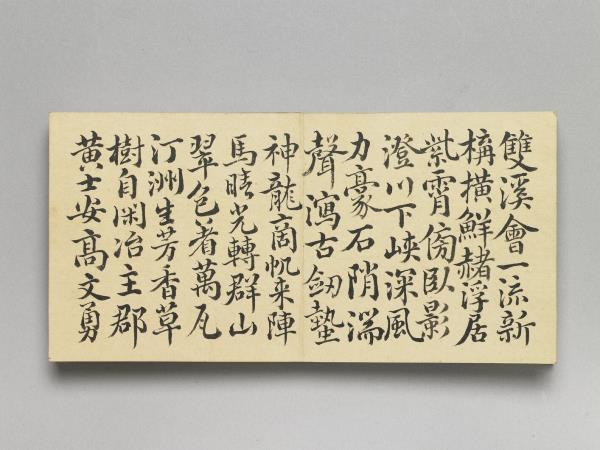 雙溪會一流新
構橫鮮赭浮居
紫霄傍臥影
澄川下峽深風
力豪石陗湍
聲瀉古劔蟄
神龍商帆来陣
馬晴光轉群山
翠色著萬瓦
汀洲生芳香草
樹自閑冶主郡
黃士安高文勇